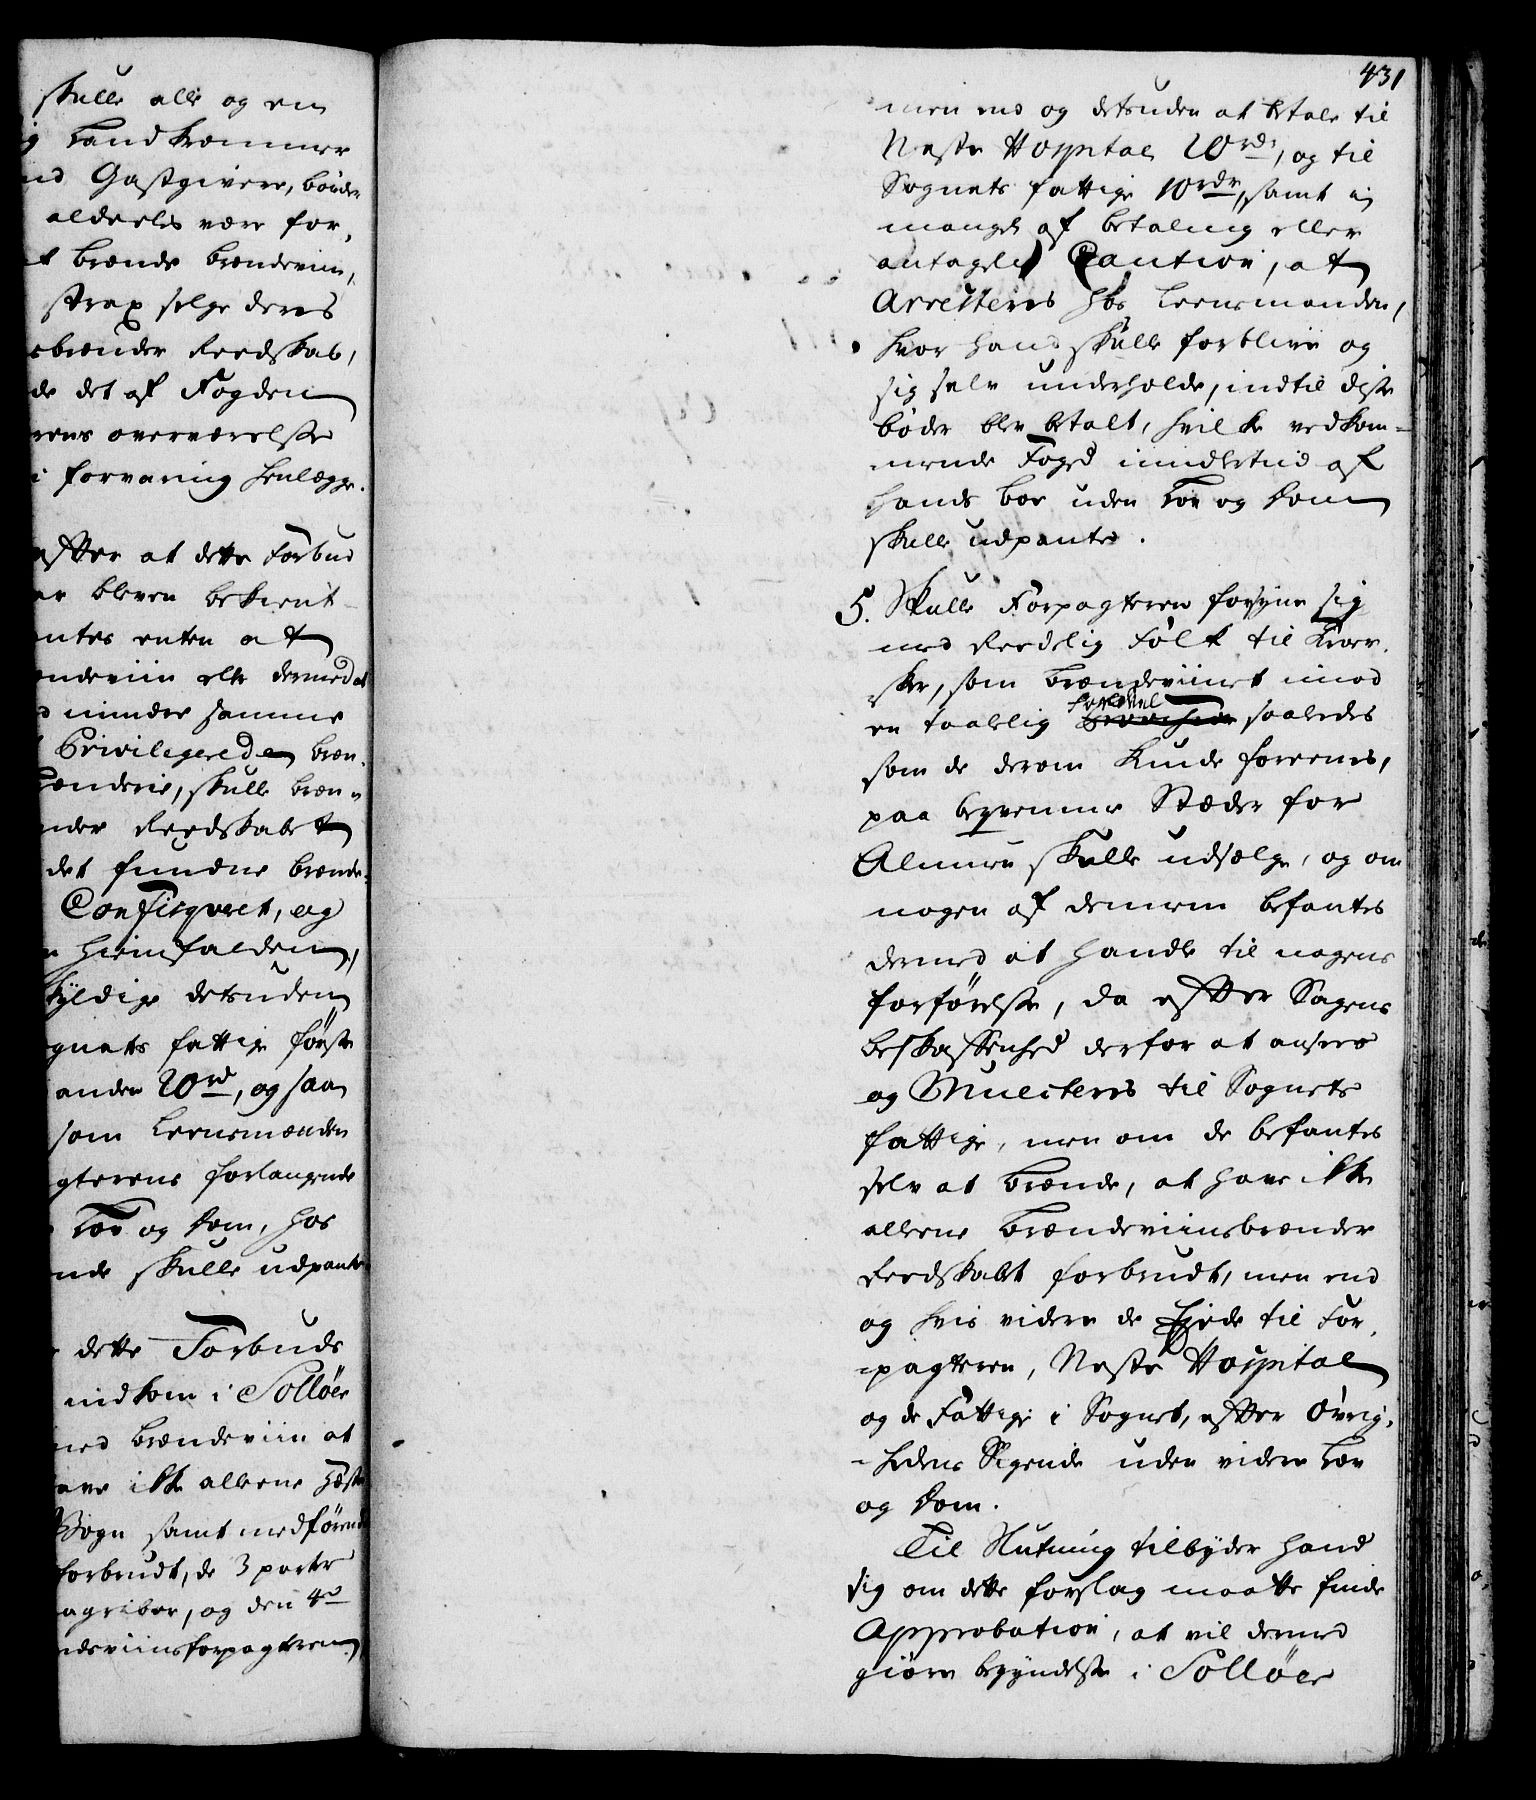 skulle alle og en
g Landkræmmer
nd Gastgivere, bönder
alderles være for,
t brænde brændeviin,
strax selge deres
sbrænder Reedskab,
de det af Fogden
rens overværelse
i forvaring henlægge.
efter at dette Forbud
er bleven bekient
antes enten at
ændeviin eller dermed at
d mindre samme
Privilegerede bræn,
hænderie, skulle bræn
nder Reedskabet
det fundne brænde,
Confisqveret, og
n hiemfalden,
skyldige desuden
gnets fattige første
anden 20rd, og saa
som Leensmanden
gterens forlangende
Lov og Dom, hos
nde skulle udpante
dette Forbuds
indkom i Solløer
med brændeviin at
ave ikke alleene Hæste
Vogn samt medførende
forbrudt, de 3 parter
agriber, og den 4d
ndeviinsforpagteren
431
men end og desuden at betale til
Neste Hospital 20rdr, og til
Sognets fattige 10rdr, samt i
mangel af betaling eller
antagelig Caution, at
Arresteres hos Leensmanden,
hvor hand skulle forblive og
sig selv underholde, indtil disse
bøder blev betalt, hvilke vedkom=
mende Foged imidlertid af
hands boe uden Lov og Dom
skulle udpante.
5. Skulle Forpagteren forsyne sig
med Reedelig Folk til Kroer,
ske, som brændeviinet imod
en taalelig fordeel saaledes
som de derom kunde foreenes,
paa beqvemme Stæder for
Almuen skulle udsælge, og om
nogen af dennem befantes
dermed at handle til nogens
forførelse, da efter Sagens
beskaffenhed derfor at ansees
og Mulcteres til Sognets
fattige, men om de befantes
selv at brænde, at have ikke
alleene brændeviinsbrænder
Reedskabet forbrudt, men end
og hvis videre de Ejede til For,
=pagteren, Neste Hospital
og de Fattige i Sognet, efter Øvrig,
=hedens Sigende uden videre Lov
og Dom.
Til Slutning tilbyder hand
sig om dette forslag maatte finde
Approbation, at vil dermed
giøre begyndelse i Solløer